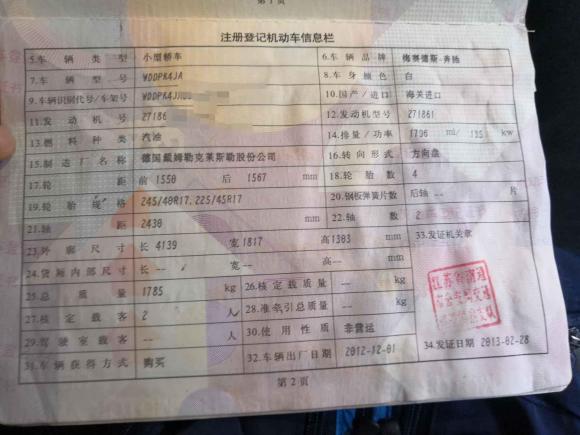 第1页
注册登记机动车信息栏
5.车辆类型 小型轿车 6.车辆品牌 梅赛德斯-奔驰
7.车辆型号 WDDPK4JA 8.车身颜色 白
9.车辆识别代号/车架号 WDDPK4J 10.国产/进口 海关进口
11.发动机号 27186 12.发动机型号 271861
13.燃料种类 汽油 14.排量/功率 1796 ml/135 kw
15.制造厂名称 德国戴姆勒克莱斯勒股份公司 16.转向形式 方向盘
17.轮距 前 1550 后 1567 mm 18.轮胎数 4
19.轮胎规格 245/40R17,225/45R17 20.钢板弹簧片数 后轴 -- 片
21.轴距 2430 mm 22.轴数 2
23.外廓尺寸 长 4139 宽 1817 高 1303 mm 33.发证机关章
24.货厢内部尺寸 长 -- 宽 -- 高 -- mm
25.总质量 1785 kg 26.核定载质量 -- kg
27.核定载客 2 人 28.准牵引总质量 -- kg
29.驾驶室载客 -- 人 30.使用性质 非营运
31.车辆获得方式 购买 32.车辆出厂日期 2012-12-01 34.发证日期 2013-02-28
第2页